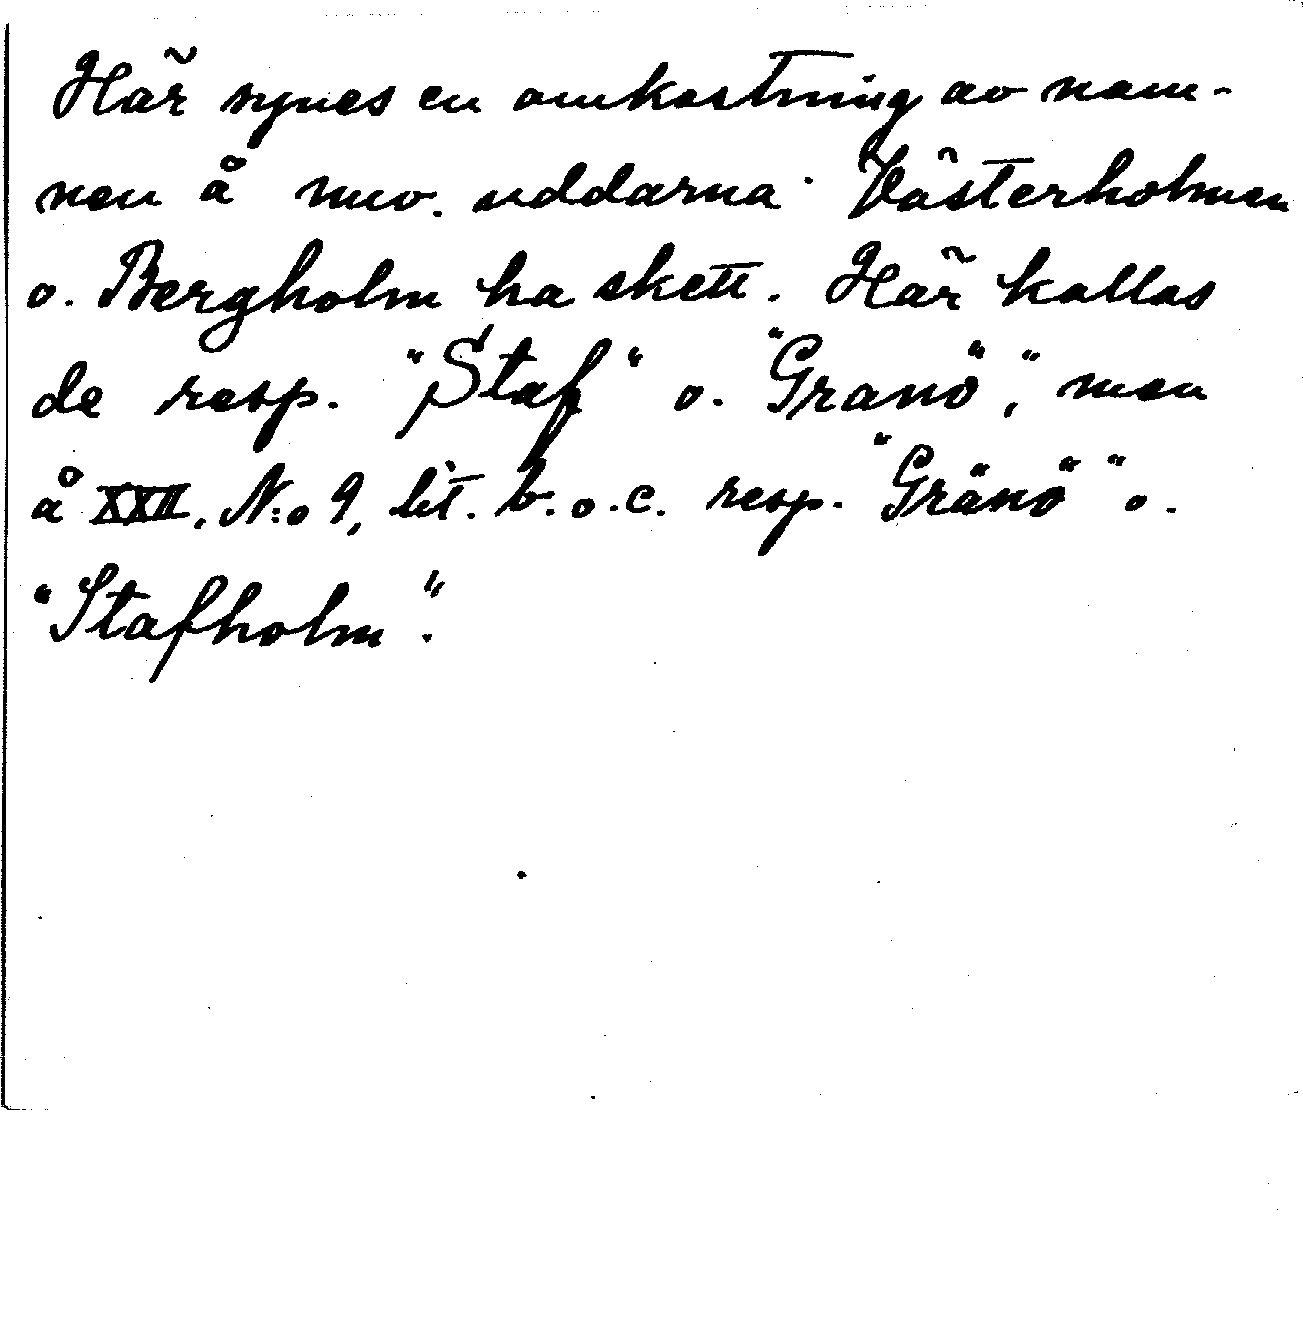 Här synes en omkastning av nam-
nen å nuv. uddarna Västerholmen
o. Bergholm ha skett. Här kallas
de resp. "Staf" o. "Granö", men
å XXII. N:o 9, lit. b. o. c. resp. "Gränö" o.
"Stafholm".